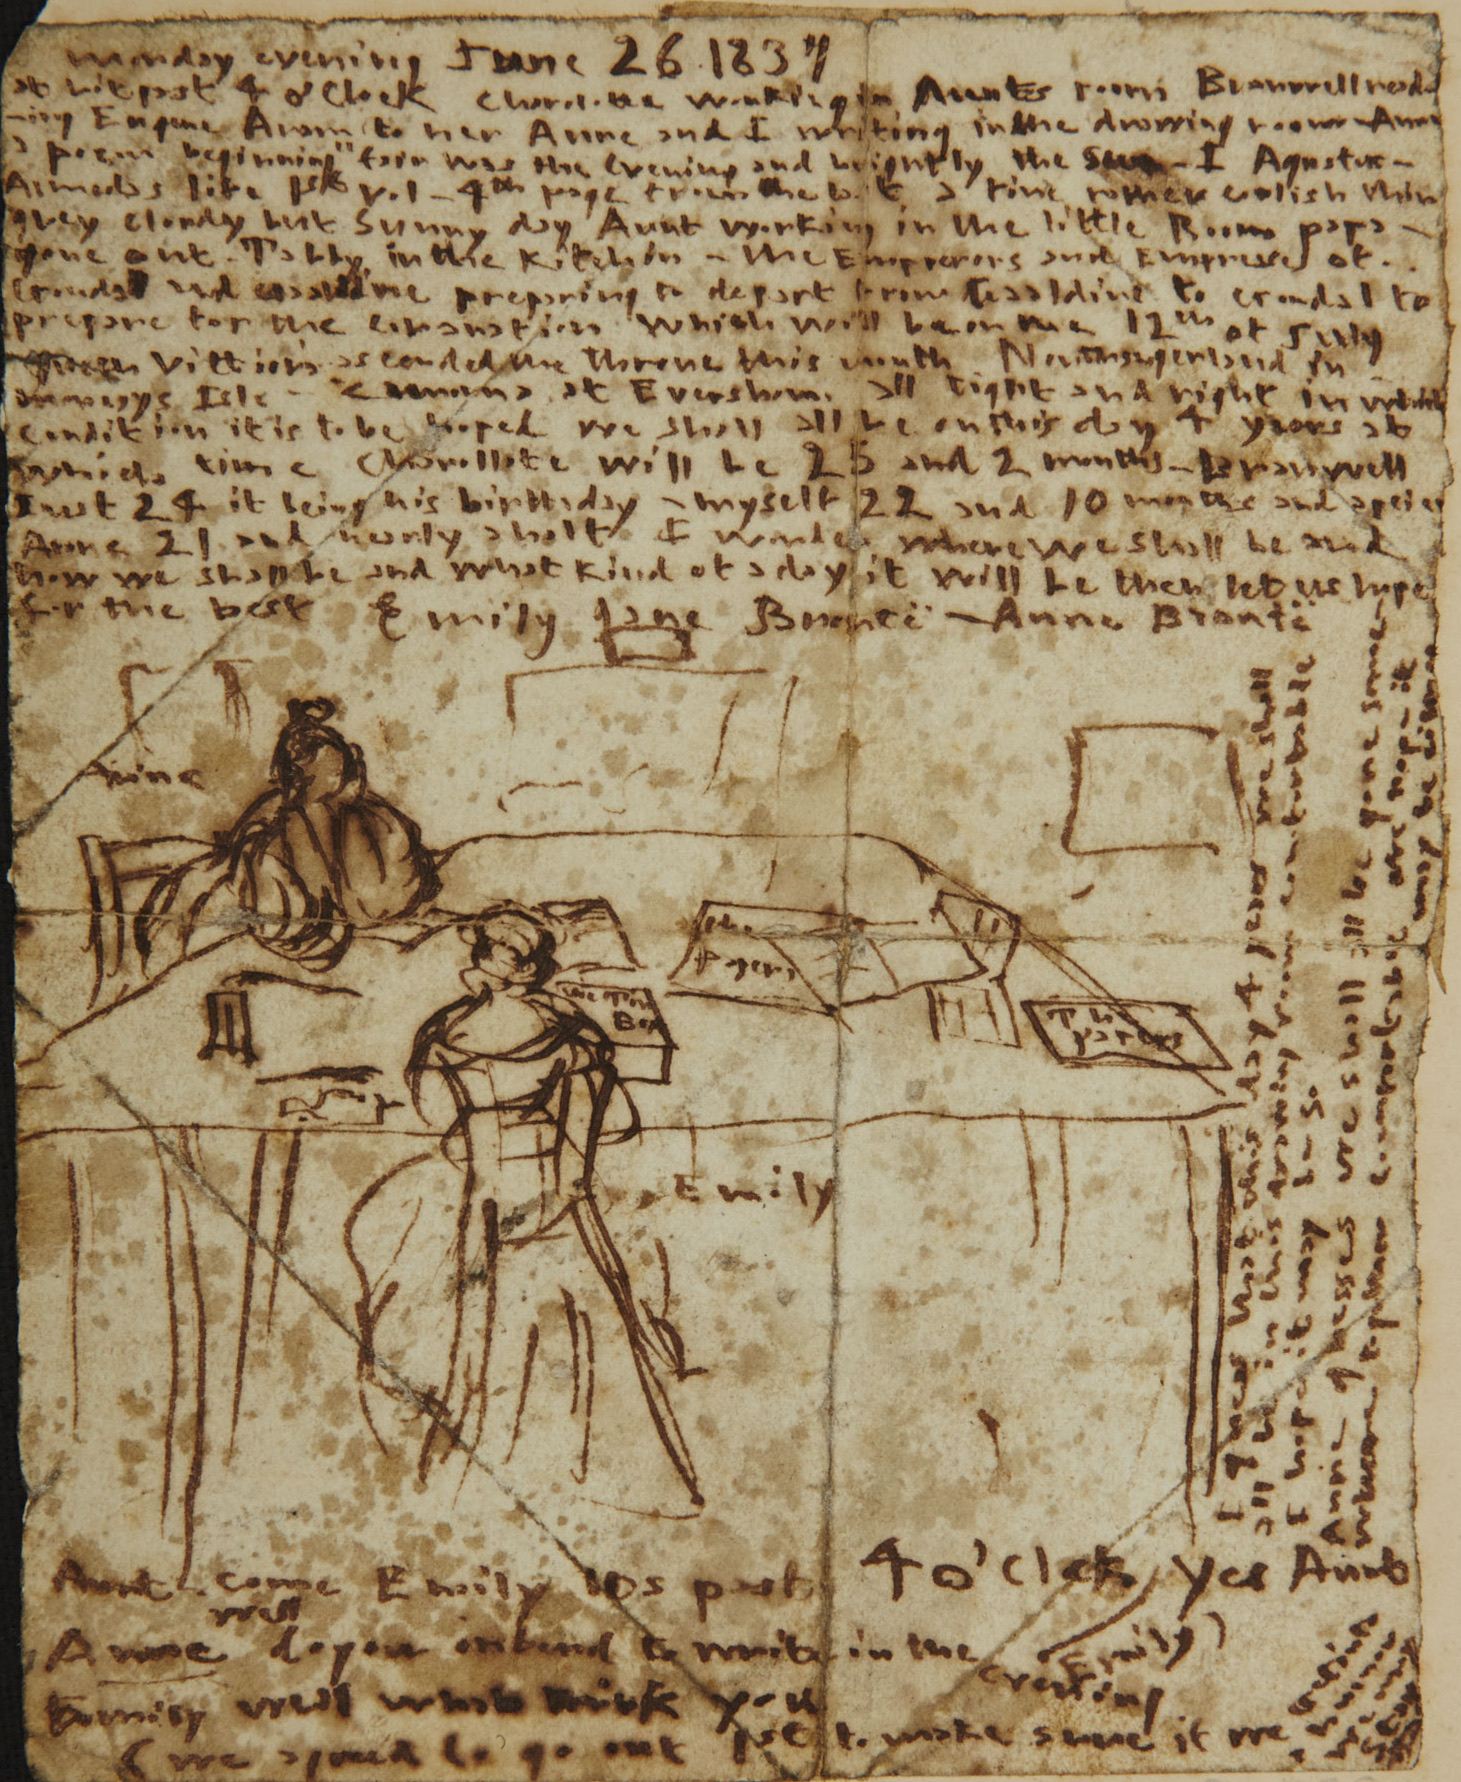 Monday evening June 26 1837
at 4 o'Clock Charlotte working in Aunts room Branwell read
ing Eugene Aram to her Anne and I writing in the drawing room Anne
a poem beginning "fair was the Evening and brightly the Sun - I Agustus -
Almedas life 1st vol - 4th page from the a fine rather coolish thin
grey cloudy but Sunny day Aunt working in the little Room papa -
gone out. Tabby in the Kitchin - the Emperors and Empresses of
Gondal and Gaaldine preparing to depart from Gaaldine to Gondal to
prepare for the coranation which will be on the 12th of July
Queen Vittiora ascended the throne this month Northangerland in
Monceys Isle - Zamorna at Eversham. all tight and right in which
condition it is to be hoped we shall all be on this day 4 years at
which time Charollote will be 25 and 2 months - Branwell
Just 24 it being his birthday - myself 22 and 10 months and a peice
Anne 21 and nearly a half I wonder where we shall be and
how we shall be and what kind of a day it will be then let us hope
for the best Emily Jane Brontë - Anne Brontë
Anne
The
papers
The Tin
Box
The
papers
Emily
I guess that this day 4 years we shall
all be in this drawing room comfortable
I hope it may be so.
Anne guesses we shall all be gone some
where together comfortable we hope it
may be
Aunt. come Emily its past 4 o'Clock Yes Aunt
Emily)
Anne well do you intend to write in the
evening
Emily well what think you
(we agreed to go out 1st to make sure if we